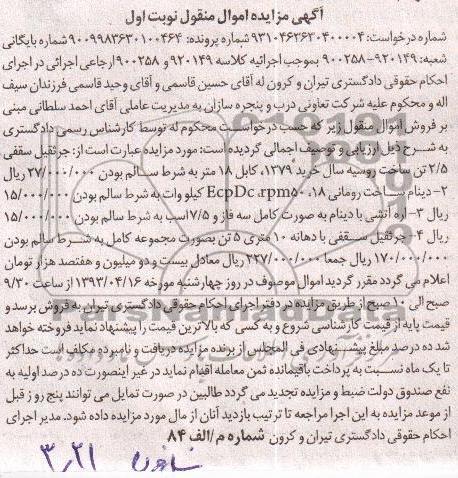 آگهی مزایده اموال منقول نوبت اول
شماره درخواست: ۹۳۱۰۴۶۲۶۳۰۴۰۰۰۰۴ شماره پرونده: ۹۰۰۹۹۸۳۶۳۰۱۰۰۴۶۴ شماره بایگانی
شعبه: ۹۲۰۱۴۹-۹۰۰۲۵۸ بموجب اجرائیه کلاسه ۹۲۰۱۴۹ و ۹۰۰۲۵۸ ارجاعی اجرائی در اجرای
احکام حقوقی دادگستری تیران و کرون له آقای حسین قاسمی و آقای وحید قاسمی فرزندان سیف
اله و محکوم علیه شرکت تعاونی درب و پنجره سازان به مدیریت عاملی آقای احمد سلطانی مبنی
بر فروش اموال منقول زیر که حسب درخواست محکوم له توسط کارشناس رسمی دادگستری
به شرح ذیل ارزیابی و توصیف اجمالی گردیده است: مورد مزایده عبارت است از: جرثقیل سقفی
۲/۵ تن ساخت روسیه سال خرید ۱۳۷۹، کابل ۱۸ متر به شرط سالم بودن ۲۷/۰۰۰/۰۰۰ ریال
۲- دینام ساخت رومانی EcpDc.rpm۵۰،۱۸ کیلو وات به شرط سالم بودن ۱۵/۰۰۰/۰۰۰
ریال ۳- اره آتشی با دینام به صورت کامل سه فاز و ۷/۵ اسب به شرط سالم بودن ۱۵/۰۰۰/۰۰۰
ریال ۴- جرثقیل سقفی با دهانه ۱۰ متری ۵ تن بصورت مجموعه کامل به شرط سالم بودن
۱۷۰/۰۰۰/۰۰۰ ریال جمعا ۲۲۷/۰۰۰/۰۰۰ ریال معادل بیست و دو میلیون و هفتصد هزار تومان
اعلام می گردد مقرر گردید اموال موصوف در روز چهارشنبه مورخه ۱۳۹۳/۰۴/۱۶ از ساعت ۹/۳۰
صبح الی ۱۰ صبح از طریق مزایده در دفتر اجرای احکام حقوقی دادگستری تیران به فروش برسد و
قیمت پایه از قیمت کارشناسی شروع و به کسی که بالاترین قیمت را پیشنهاد نماید فروخته خواهد
شد ده درصد مبلغ پیشنهادی فی المجلس از برنده مزایده دریافت و نامبرده مکلف است حداکثر
تا یک ماه نسبت به پرداخت باقیمانده ثمن معامله اقدام نماید در غیر اینصورت ده درصد اولیه به
نفع صندوق دولت ضبط و مزایده تجدید می گردد طالبین در صورت تمایل می توانند پنج روز قبل
از موعد مزایده به این اجرا مراجعه تا ترتیب بازدید آنان از مال مورد مزایده داده شود. مدیر اجرای
احکام حقوقی دادگستری تیران و کرون شماره م/الف ۸۴
۳،۲۱